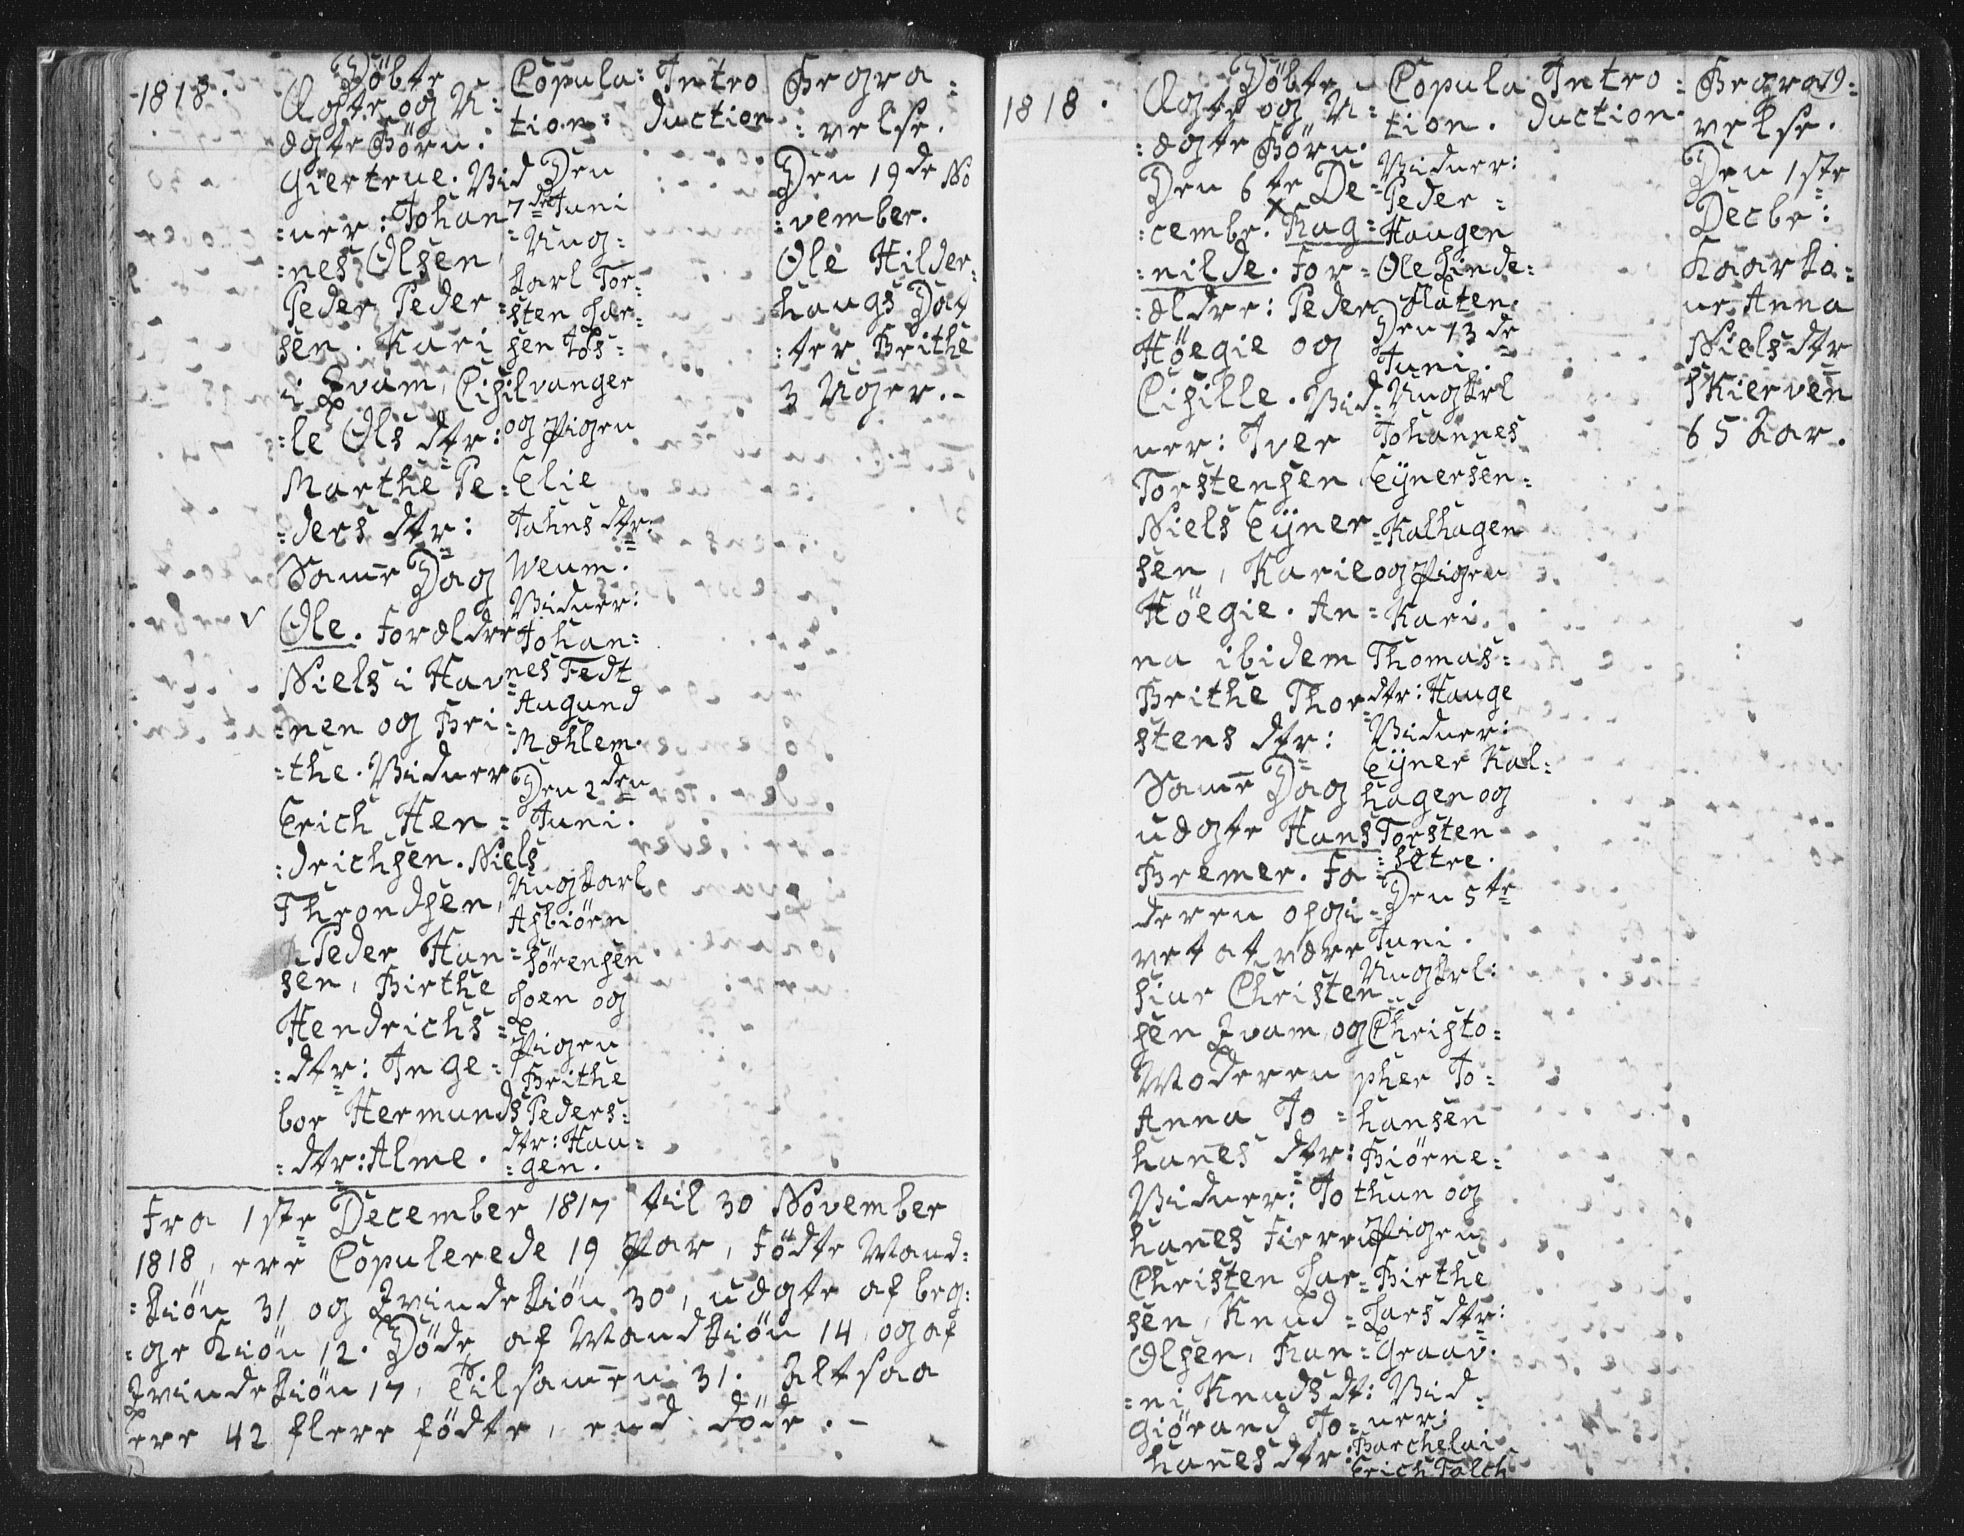 1818.
Döbte
Ægte og U-
ægte Börn.
Giertrue. Vid
ner: Johan
nes Olsen,
Peder Peder-
sen. Kari
i Qvam, Cisil
le Ols dtr:
Marthe Pe-
ders dtr:
Samme Dag
Ole. Forældre
Niels i Hav
nen og Bri-
the. Vidner
Erich Hen-
drichsen. Niels
Throndsen,
Peder Han-
sen, Birthe
Hendrichs-
dtr: Inge-
bor Hermunds
dtr: Alme.
Copula-
tion:
Den
7de Juni
Ung-
karl Tor-
sten Lar-
sen Jos-
vanger
og Pigen
Elie
Jahns dtr:
Weum.
Vidner:
Johan-
nes Fedt
Augund
Mæhlem.
Den 2den
Juni.
Ungkarl
Asbiörn
Sörensen
Loen og
Pigen
Brithe
Peders-
dtr: Hau-
gen.
Intro
duction
Begra-
velse.
Den 19de No
vember.
Ole Hilder-
haugs Dat
ter Brithe
3 Uger.-
Fra 1ste December 1817 til 30 November
1818, ere Copulerede 19 Par, Födte Mand-
kiön 31 og Qvindekiön 30, uægte af beg-
ge Kiön 12. Döde af Mandkiön 14, og af
Qvindekiön 17, Tilsammen 31. Altsaa
ere 42 flere födte, end döde.-
1818.
Döbte
Ægte og U-
ægte Börn.
Den 6te De-
cembr. Rag-
nilde. For-
ældre: Peder
Höegie og
Cisille. Vid-
ner: Iver
Torstensen
Niels Eijner
sen, Karie
Höegie. An-
na ibidem
Brithe Thor
stens dtr:
Samme Dag
uægte Hans
Bremer. Fa
deren opgi-
vet at være
hiur Christen
sen Qvam, og
Moderen
Anna Jo-
hanes dtr:
Vidner: Jo
hanes Tierru
Christen Lar-
sen, Knud
Olsen, Ran-
ni Knuds dt:
Giörand Jo-
hanes dtr:
Copula
tion.
Vidner:
Peder
Haugen
Ole Linde-
flaten.
Den 13de
Juni.
Ungkrl
Johannes
Eijnersen
Kalhagen
og Pigen
Kari
Thomas-
dtr: Hauge
Vidner:
Eijner Kal-
hagen og
Torsten
Sætre.
Den 5te
Juni.
Ungkrl:
Christo-
pher Jo-
hansen
Biörne-
thun og
Pigen
Birthe
Lars dtr:
Graav.
Vid-
ner:
Barchelai
Erich Falch
Intro-
duction.
Begra-
velse.
19
Den 1ste
Decbr:
Kaarko-
ne Anna
Niels dtr
Skierven
65 Aar.